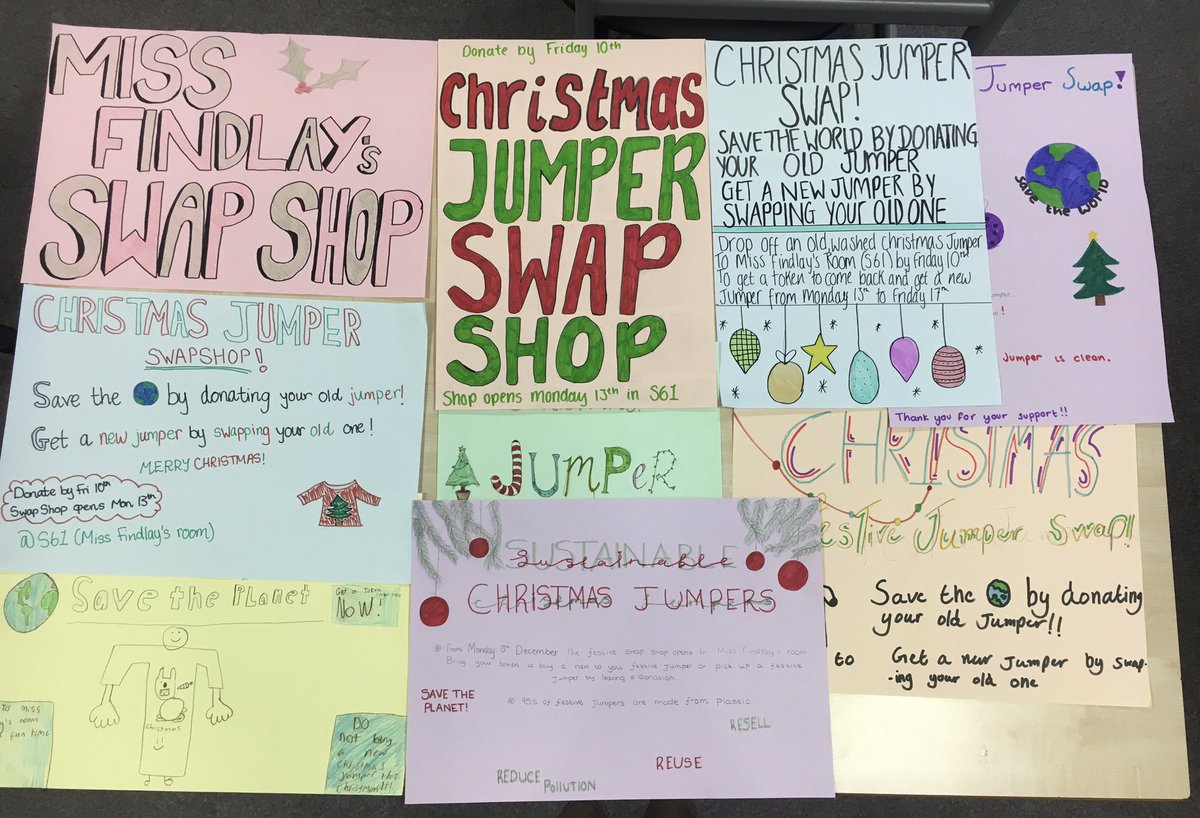 MISS
FINDLAY's
SWAP SHOP
Donate by Friday 10th
Christmas
JUMPER
SWAP
SHOP
Shop opens monday 13th in S61
CHRISTMAS JUMPER
SWAP!
SAVE THE WORLD BY DONATING
YOUR OLD JUMPER
GET A NEW JUMPER BY
SWAPPING YOUR OLD ONE
Drop off an old, washed Christmas Jumper
To Miss Findlay's Room (S61) by Friday 10th
To get a token to come back and get a new
Jumper from Monday 13th to Friday 17th
Jumper Swap!
Save the World
Jumper is clean.
Thank you for your support!!
CHRISTMAS JUMPER
SWAPSHOP!
Save the by donating your old jumper!
Get a new jumper by swapping your old one!
MERRY CHRISTMAS!
Donate by Fri 10th
Swap Shop opens Mon. 13th
@S61 (Miss Findlay's room)
JUMPER
CHRISTMAS
Festive Jumper Swap!
Save the by donating
your old Jumper!!
to
Get a new Jumper by swap-
-ing your old one
Save the Planet
Get a Token
NOW!
Christmas
TO MISS
fun time
DO
not buy
a new
Christmas
Jumper this
Christmas!!!
SUSTAINABLE
Sustainable
CHRISTMAS JUMPERS
* From Monday 13th December the festive swap shop opens in Miss Findlay's room
Bring your token to buy a new to you festive jumper or pick up a festive
jumper by leaving a donation
SAVE THE
PLANET!
* 95% of festive jumpers are made from plastic
RESELL
REUSE
REDUCE POLLUTION